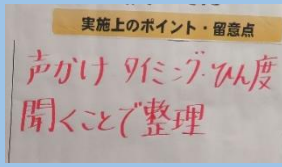 実施上のポイント・留意点
声かけ タイミング・ひん度
聞くことで整理